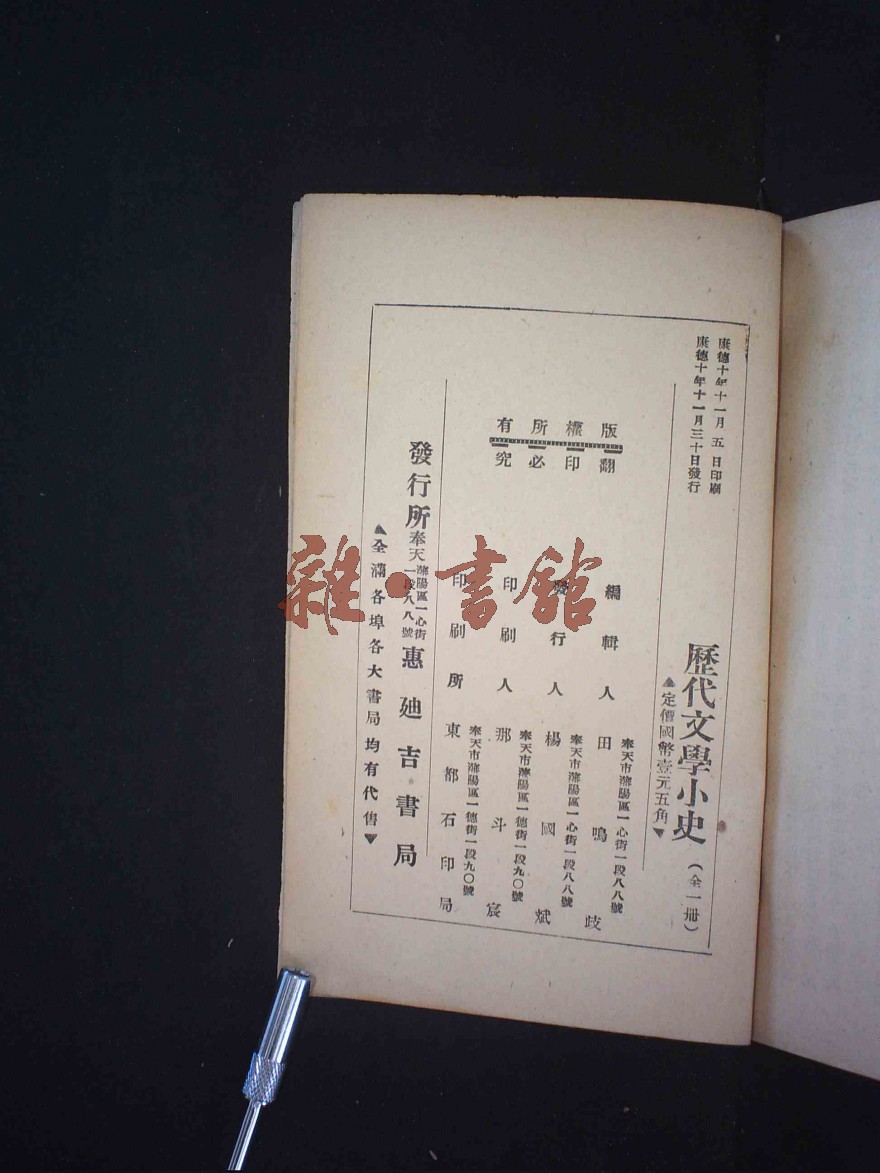 康德十年十一月五日印刷
康德十年十一月三十日發行
歷代文學小史（全一冊）
▲定價國幣壹元五角▼
版權所有
翻印必究
奉天市瀋陽區一心街一段八八號
編輯人田鳴歧
奉天市瀋陽區一心街一段八八號
發行人楊國斌
奉天市瀋陽區一德街一段九〇號
印刷人那斗宸
奉天市瀋陽區一德街一段九〇號
印刷所東都石印局
發行所奉天瀋陽區一心街一段八八號惠迪吉書局
▲全滿各埠各大書局均有代售▼
雜·書館